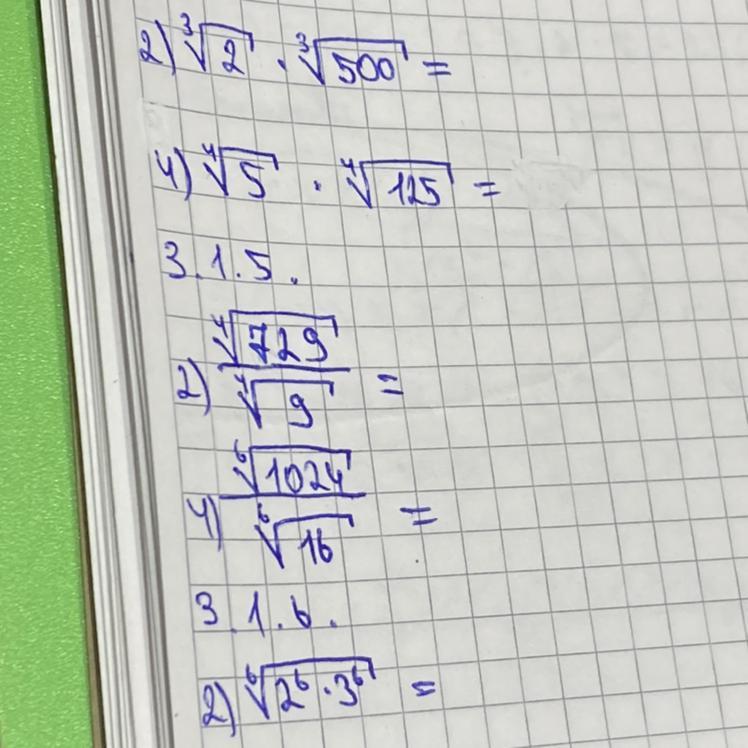 2) ∛2 · ∛500 =
4) ∜5 · ∜125 =
3.1.5.
2) ∜729 / ∜9 =
4) ⁶√1024 / ⁶√16 =
3.1.6.
2) ⁶√(2⁶ · 3⁶) =